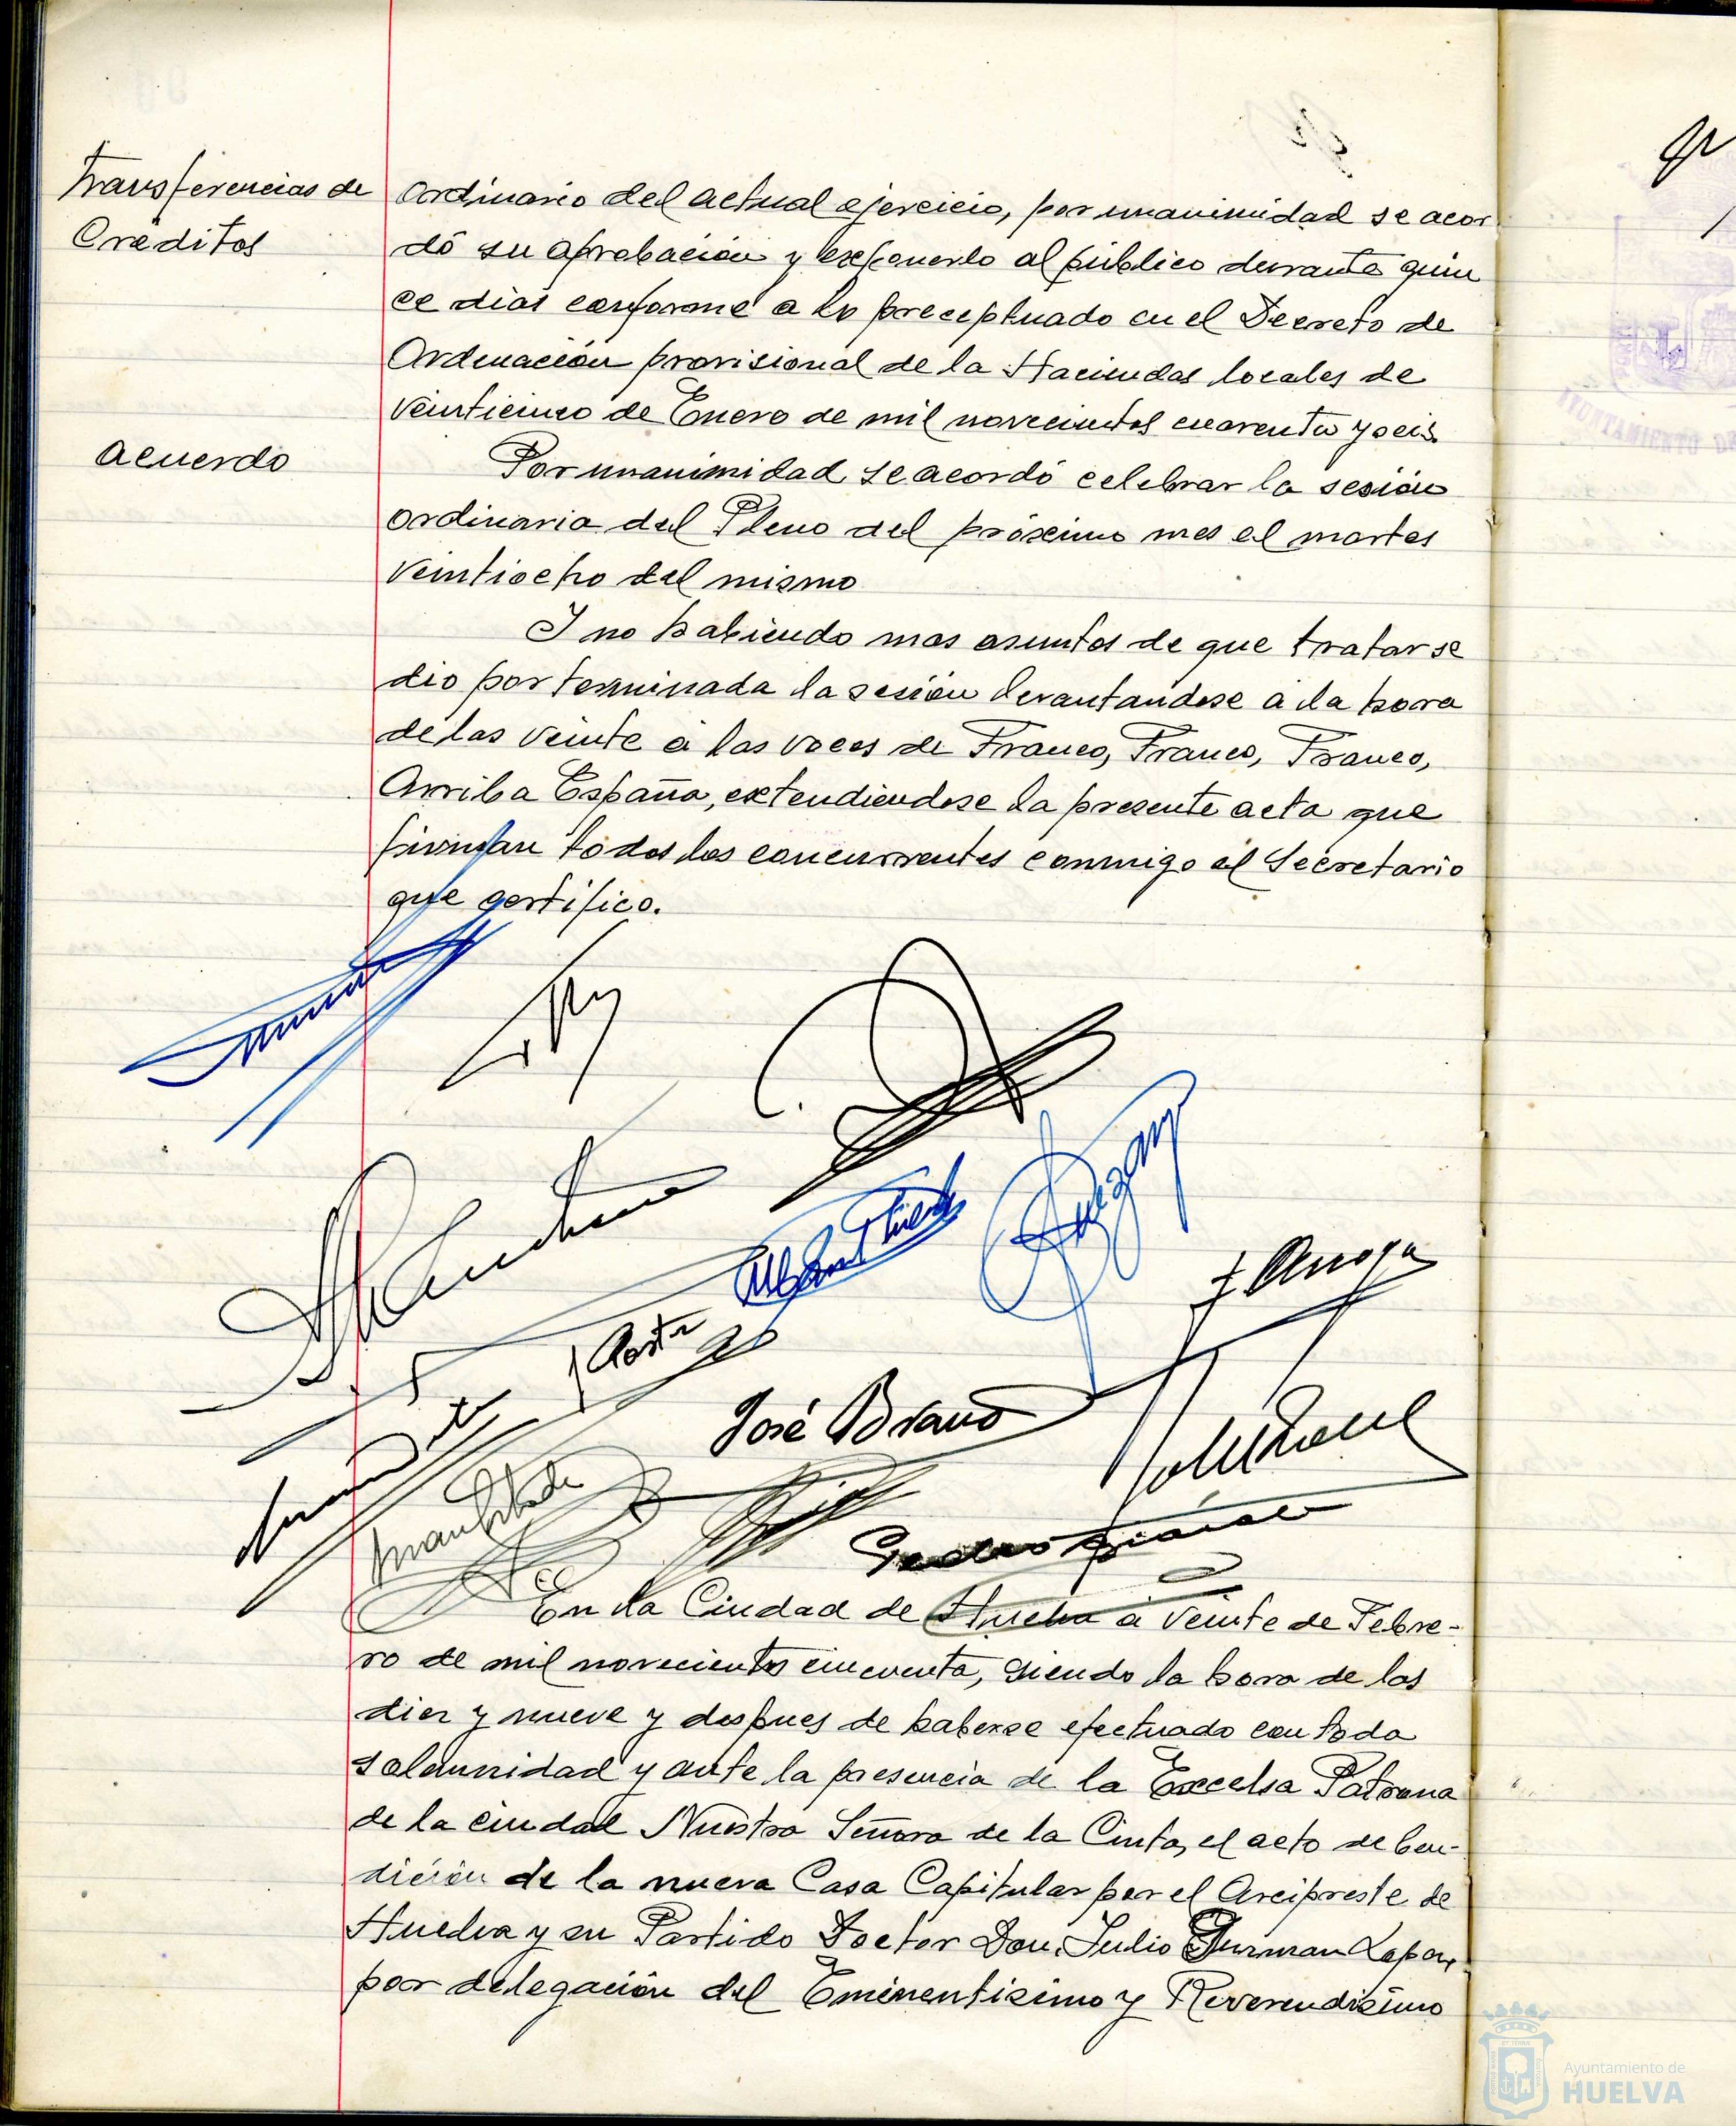 Transferencias de
Creditos
ordinario del actual ejercicio, por unanimidad se acor
dó su aprobación y exponerlo al público durante quin
ce dias conforme a lo preceptuado en el Decreto de
Ordenación provisional de la Haciendas locales de
veinticinco de Enero de mil novecientos cuarenta y seis.
Acuerdo
Por unanimidad se acordó celebrar la sesión
ordinaria del Pleno del próximo mes el martes
veintiocho del mismo
Y no habiendo mas asuntos de que tratar se
dio por terminada la sesión levantandose a la hora
de las veinte a las voces de Franco, Franco, Franco,
Arriba España, extendiendose la presente acta que
firman todos los concurrentes conmigo el Secretario
que certifico.
José Bravo
En la Ciudad de Huelva a veinte de Febre-
ro de mil novecientos cincuenta, siendo la hora de las
diez y nueve y despues de haberse efectuado con toda
solemnidad y ante la presencia de la Excelsa Patrona
de la ciudad Nuestra Señora de la Cinta, el acto de ben-
dición de la nueva Casa Capitular por el Arcipreste de
Huelva y su Partido Doctor Don Julio Guzman Lopez,
por delegación del Eminentisimo y Reverendisimo
AYUNTAMIENTO DE
Ayuntamiento de
HUELVA